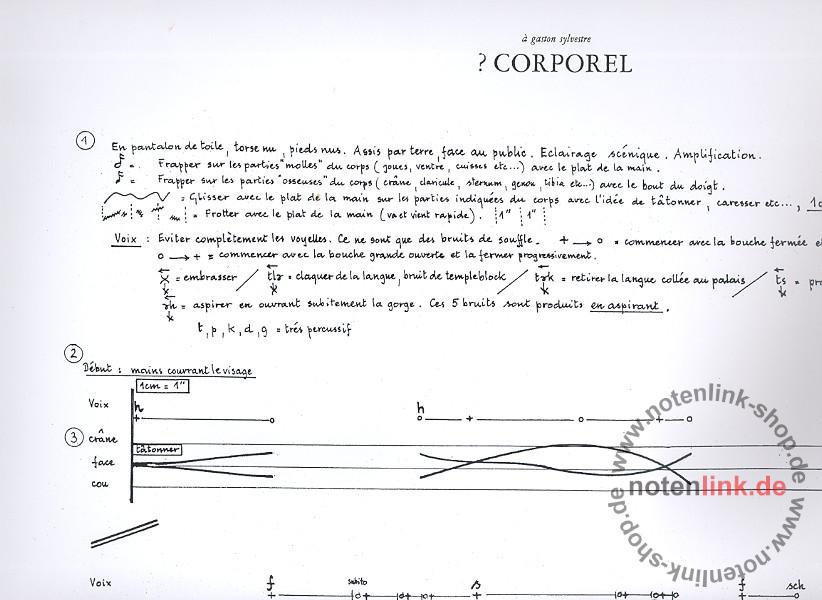 à gaston sylvestre
? CORPOREL
1
En pantalon de toile, torse nu, pieds nus. Assis par terre, face au public. Eclairage scénique. Amplification.
= Frapper sur les parties "molles" du corps (joues, ventre, cuisses etc...) avec le plat de la main.
= Frapper sur les parties "osseuses" du corps (crâne, clavicule, sternum, genou, tibia etc...) avec le bout du doigt.
= Glisser avec le plat de la main sur les parties indiquées du corps avec l'idée de tâtonner, caresser etc..., 1c
= Frotter avec le plat de la main (va et vient rapide). 1" 1"
Voix : Eviter complètement les voyelles. Ce ne sont que des bruits de souffle. + → o = commencer avec la bouche fermée et
o → + = commencer avec la bouche grande ouverte et la fermer progressivement.
= embrasser / = claquer de la langue, bruit de templeblock / = retirer la langue collée au palais / ts = pro
= aspirer en ouvrant subitement la gorge. Ces 5 bruits sont produits en aspirant.
t, p, k, d, g = trés percussif
2
Début : mains couvrant le visage
1cm = 1"
Voix h h
3
crâne
tâtonner
face
cou
Voix f subito s f sch
www.notenlink-shop.de www.notenlink-shop.de
notenlink.de